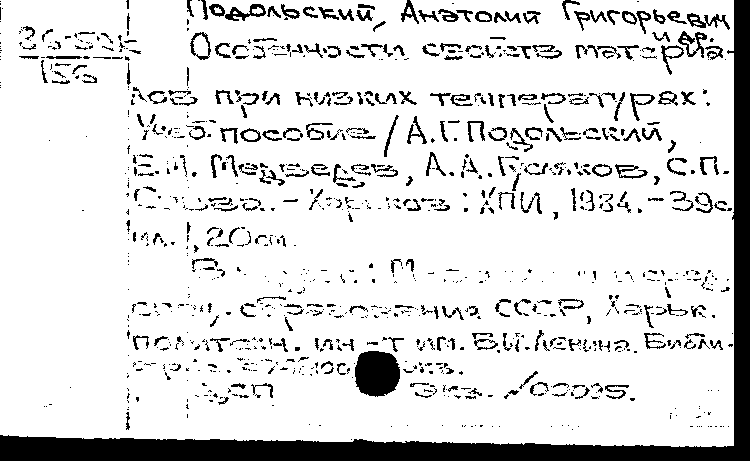 Подольский, Анатолий Григорьевич
и др.
Особенности свойств материа-
156
лов при низких температурах:
Учеб. пособие / А.Г. Подольский,
Е.М. Медведев, А.А. Гусляков, С.П.
– Харьков : ХПИ, 1984. – 39с,
ил. , 20см.
В : М-во и сред.
спец. образования СССР, Харьк.
политехн. ин-т им. В.И. Ленина. Библи-
экз.
ЭКЗ.